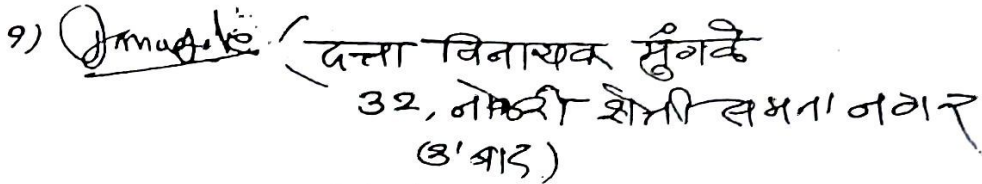 १) (दत्ता विनायक मुंगळे
32, नोकरी शेती समता नगर
(उ'बाद)